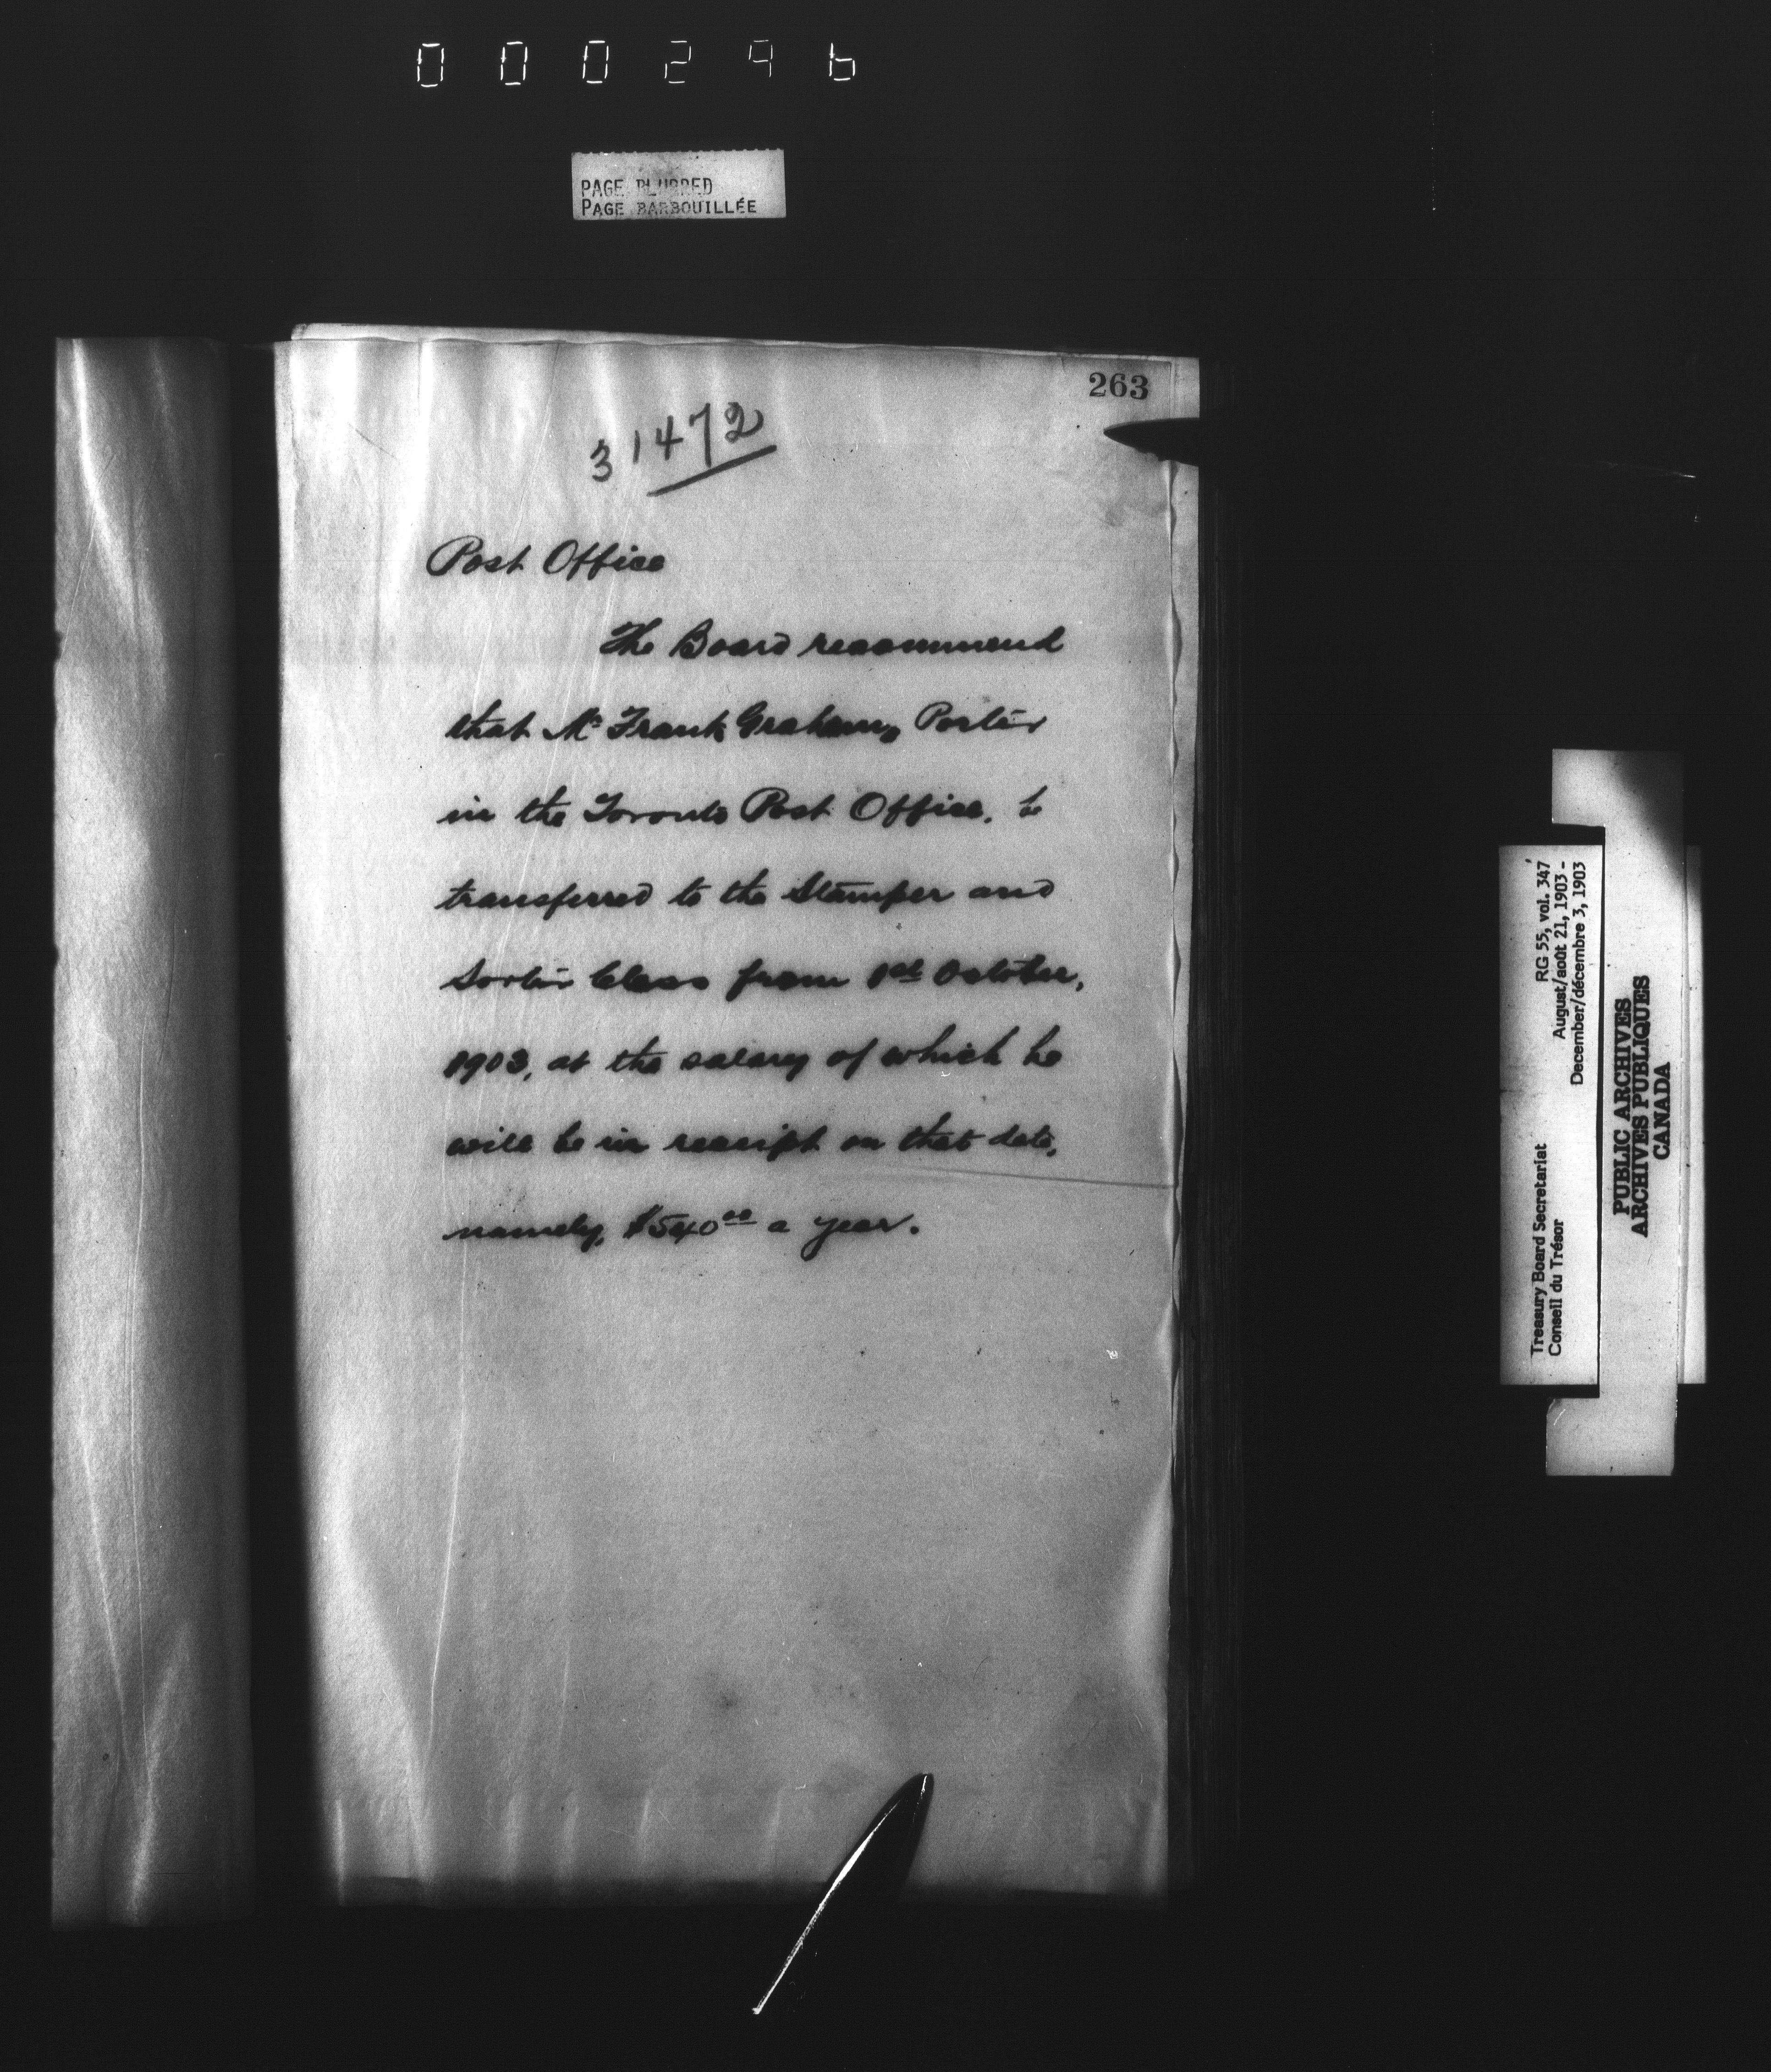 000296
PAGE BLURRED
PAGE BARBOUILLÉE
263
31472
Post Office
The Board recommend
that Mr Frank Graham, Porter
in the Toronto Post Office, be
transferred to the Stamper and
Sorter Class from 1st October,
1903, at the salary of which he
will be in receipt on that date,
namely, $540.00 a year.
Treasury Board Secretariat RG 55, vol. 347
Conseil du Trésor August/août 21, 1903 -
December/décembre 3, 1903
PUBLIC ARCHIVES
ARCHIVES PUBLIQUES
CANADA